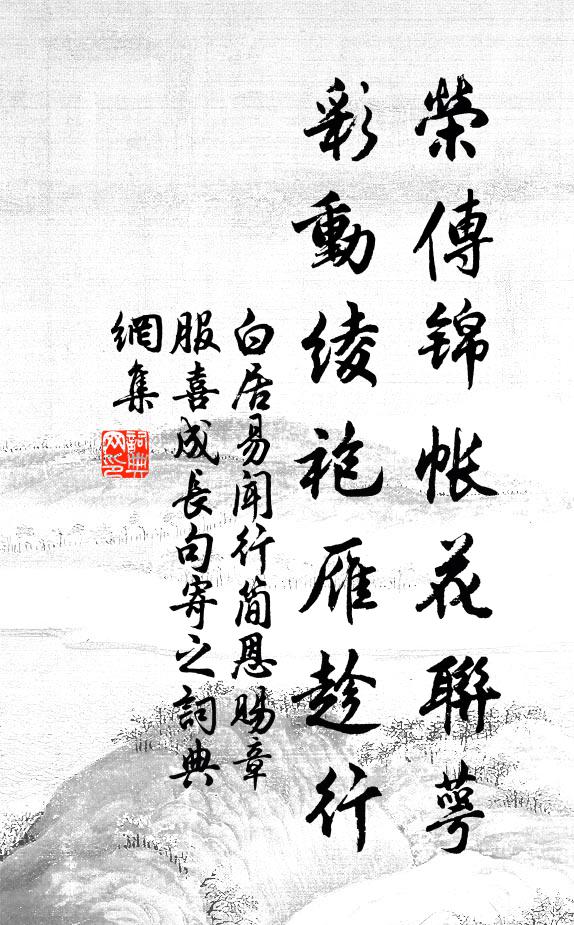 榮傳錦帳花聯萼
彩動綾袍雁趁行
白居易聞行簡恩賜章
服喜成長句寄之詞典
網集
詞典
网印